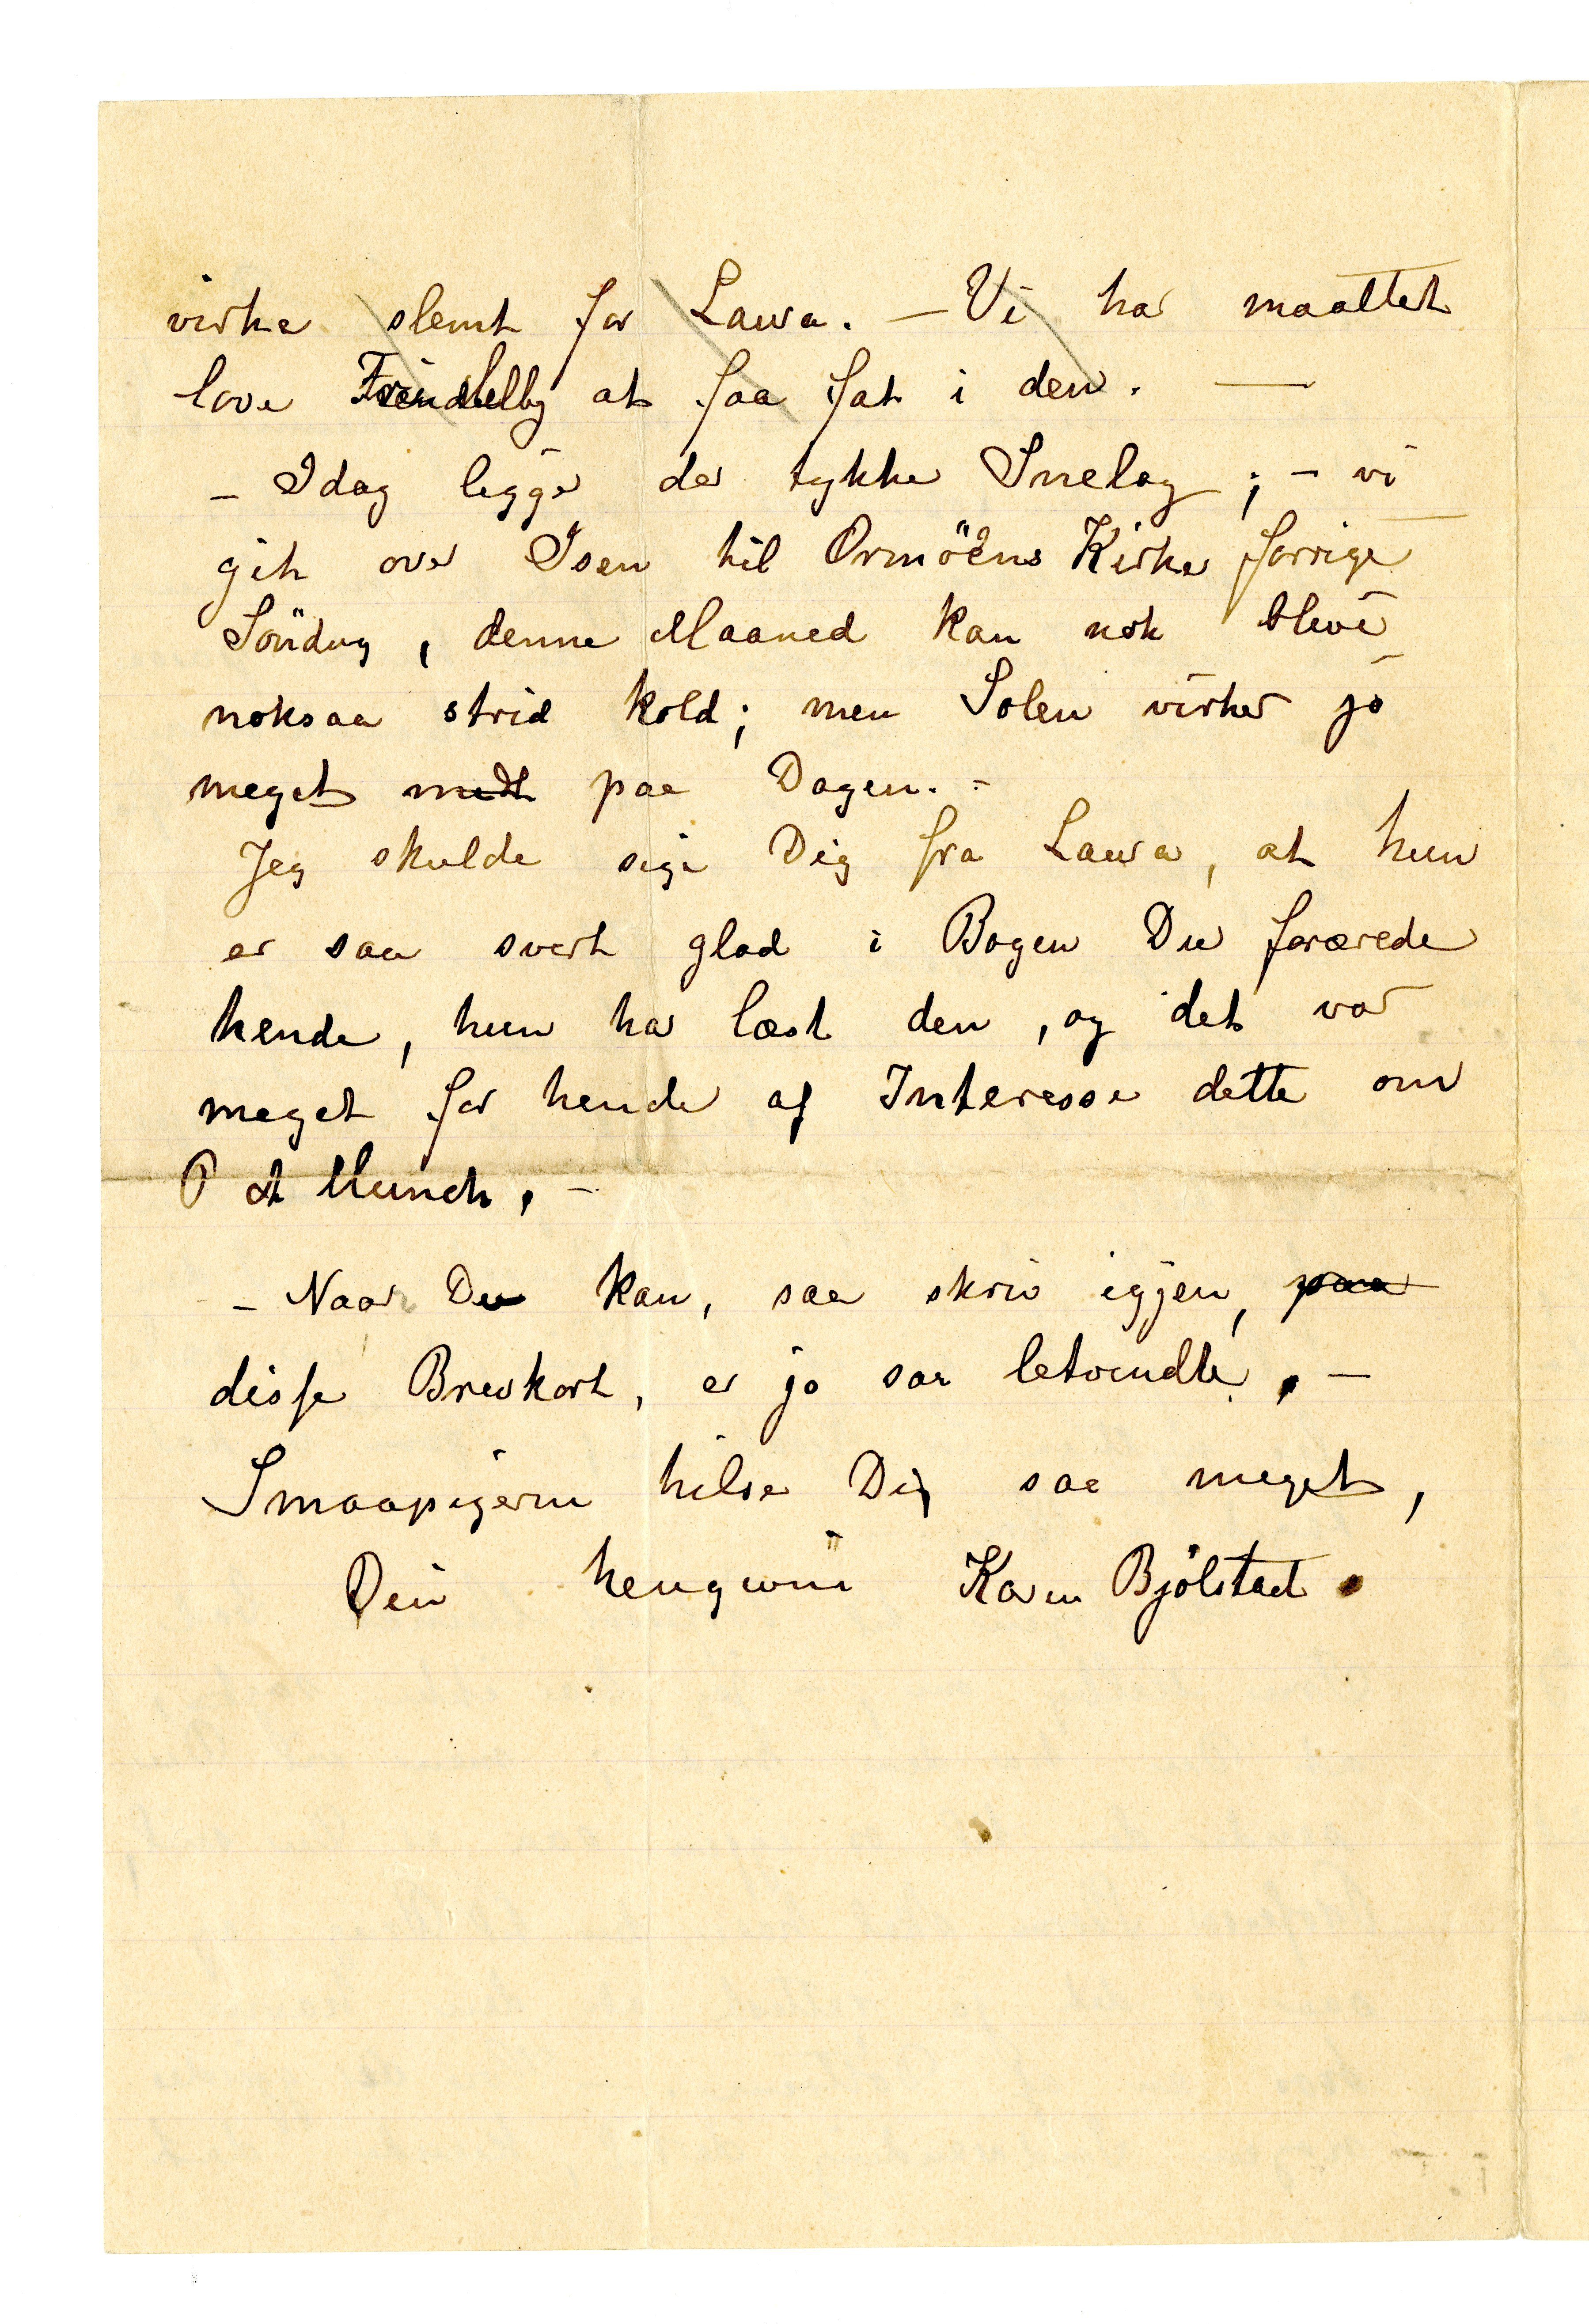 virke slemt for Laura. — Vi har maattet
love at faa fat i den. —
– Idag ligger der tykke Snelag ; – vi
gik over Isen til Ormöens Kirke forrige
Söndag, denne Maaned kan nok blive
noksaa strid kold; men Solen virker jo
meget midt paa Dagen. –
Jeg skulde sige Dig fra Laura, at hun
er saa svert glad i Bogen Du forærede
hende, hun har læst den, og det var
meget for hende af Interesse dette om
P A Munch. –
– Naar Du kan, saa skriv igjen, paa
disse Brevkort, er jo saa letvendte. –
Smaapigerne hilse Dig saa meget,
Din hengivne Karen Bjölstad.